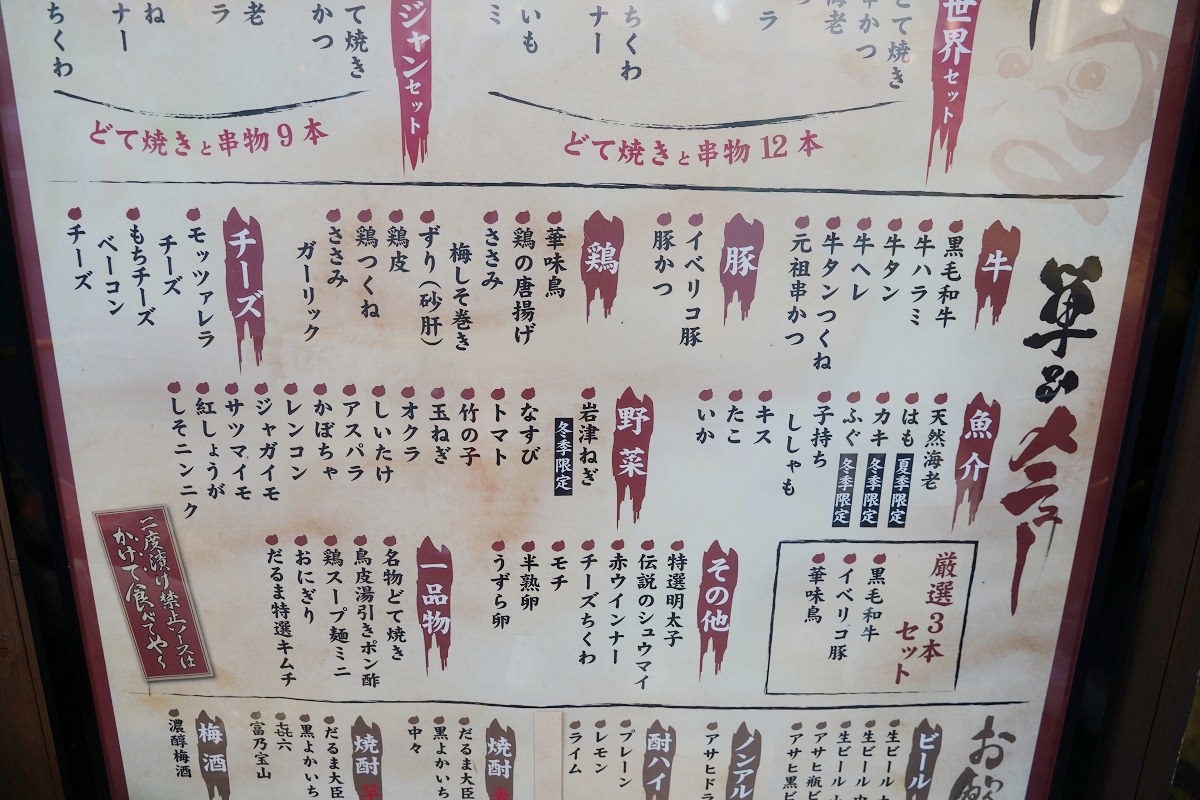 世界セット
どて焼き
串かつ
海老
ラ
ちくわ
ナー
いも
ミ
どて焼きと串物12本
ジャンセット
て焼き
かつ
老
ラ
ね
ナー
ちくわ
どて焼きと串物9本
単品メニュー
牛
黒毛和牛
牛ハラミ
牛タン
牛ヘレ
牛タンつくね
元祖串かつ
豚
イベリコ豚
豚かつ
鶏
華味鳥
鶏の唐揚げ
ささみ
梅しそ巻き
ずり(砂肝)
鶏皮
鶏つくね
ささみ
ガーリック
チーズ
モッツァレラ
チーズ
もちチーズ
ベーコン
チーズ
魚介
天然海老
はも 夏季限定
カキ 冬季限定
ふぐ 冬季限定
子持ち
ししゃも
キス
たこ
いか
野菜
岩津ねぎ
冬季限定
なすび
トマト
竹の子
玉ねぎ
オクラ
しいたけ
アスパラ
かぼちゃ
レンコン
ジャガイモ
サツマイモ
紅しょうが
しそニンニク
厳選3本
セット
黒毛和牛
イベリコ豚
華味鳥
その他
特選明太子
伝説のシュウマイ
赤ウインナー
チーズちくわ
モチ
半熟卵
うずら卵
一品物
名物どて焼き
鳥皮湯引きポン酢
鶏スープ麺ミニ
おにぎり
だるま特選キムチ
二度漬け禁止ソースは
かけて食べてや〜
お飲
ビール
生ビール
生ビール 中
生ビール
アサヒ瓶ビ
アサヒ黒ビ
ノンアル
アサヒドラ
酎ハイ
プレーン
レモン
ライム
焼酎
だるま大臣
黒よかいち
中々
焼酎
だるま大臣
黒よかいち
㐂六
富乃宝山
梅酒
濃醇梅酒